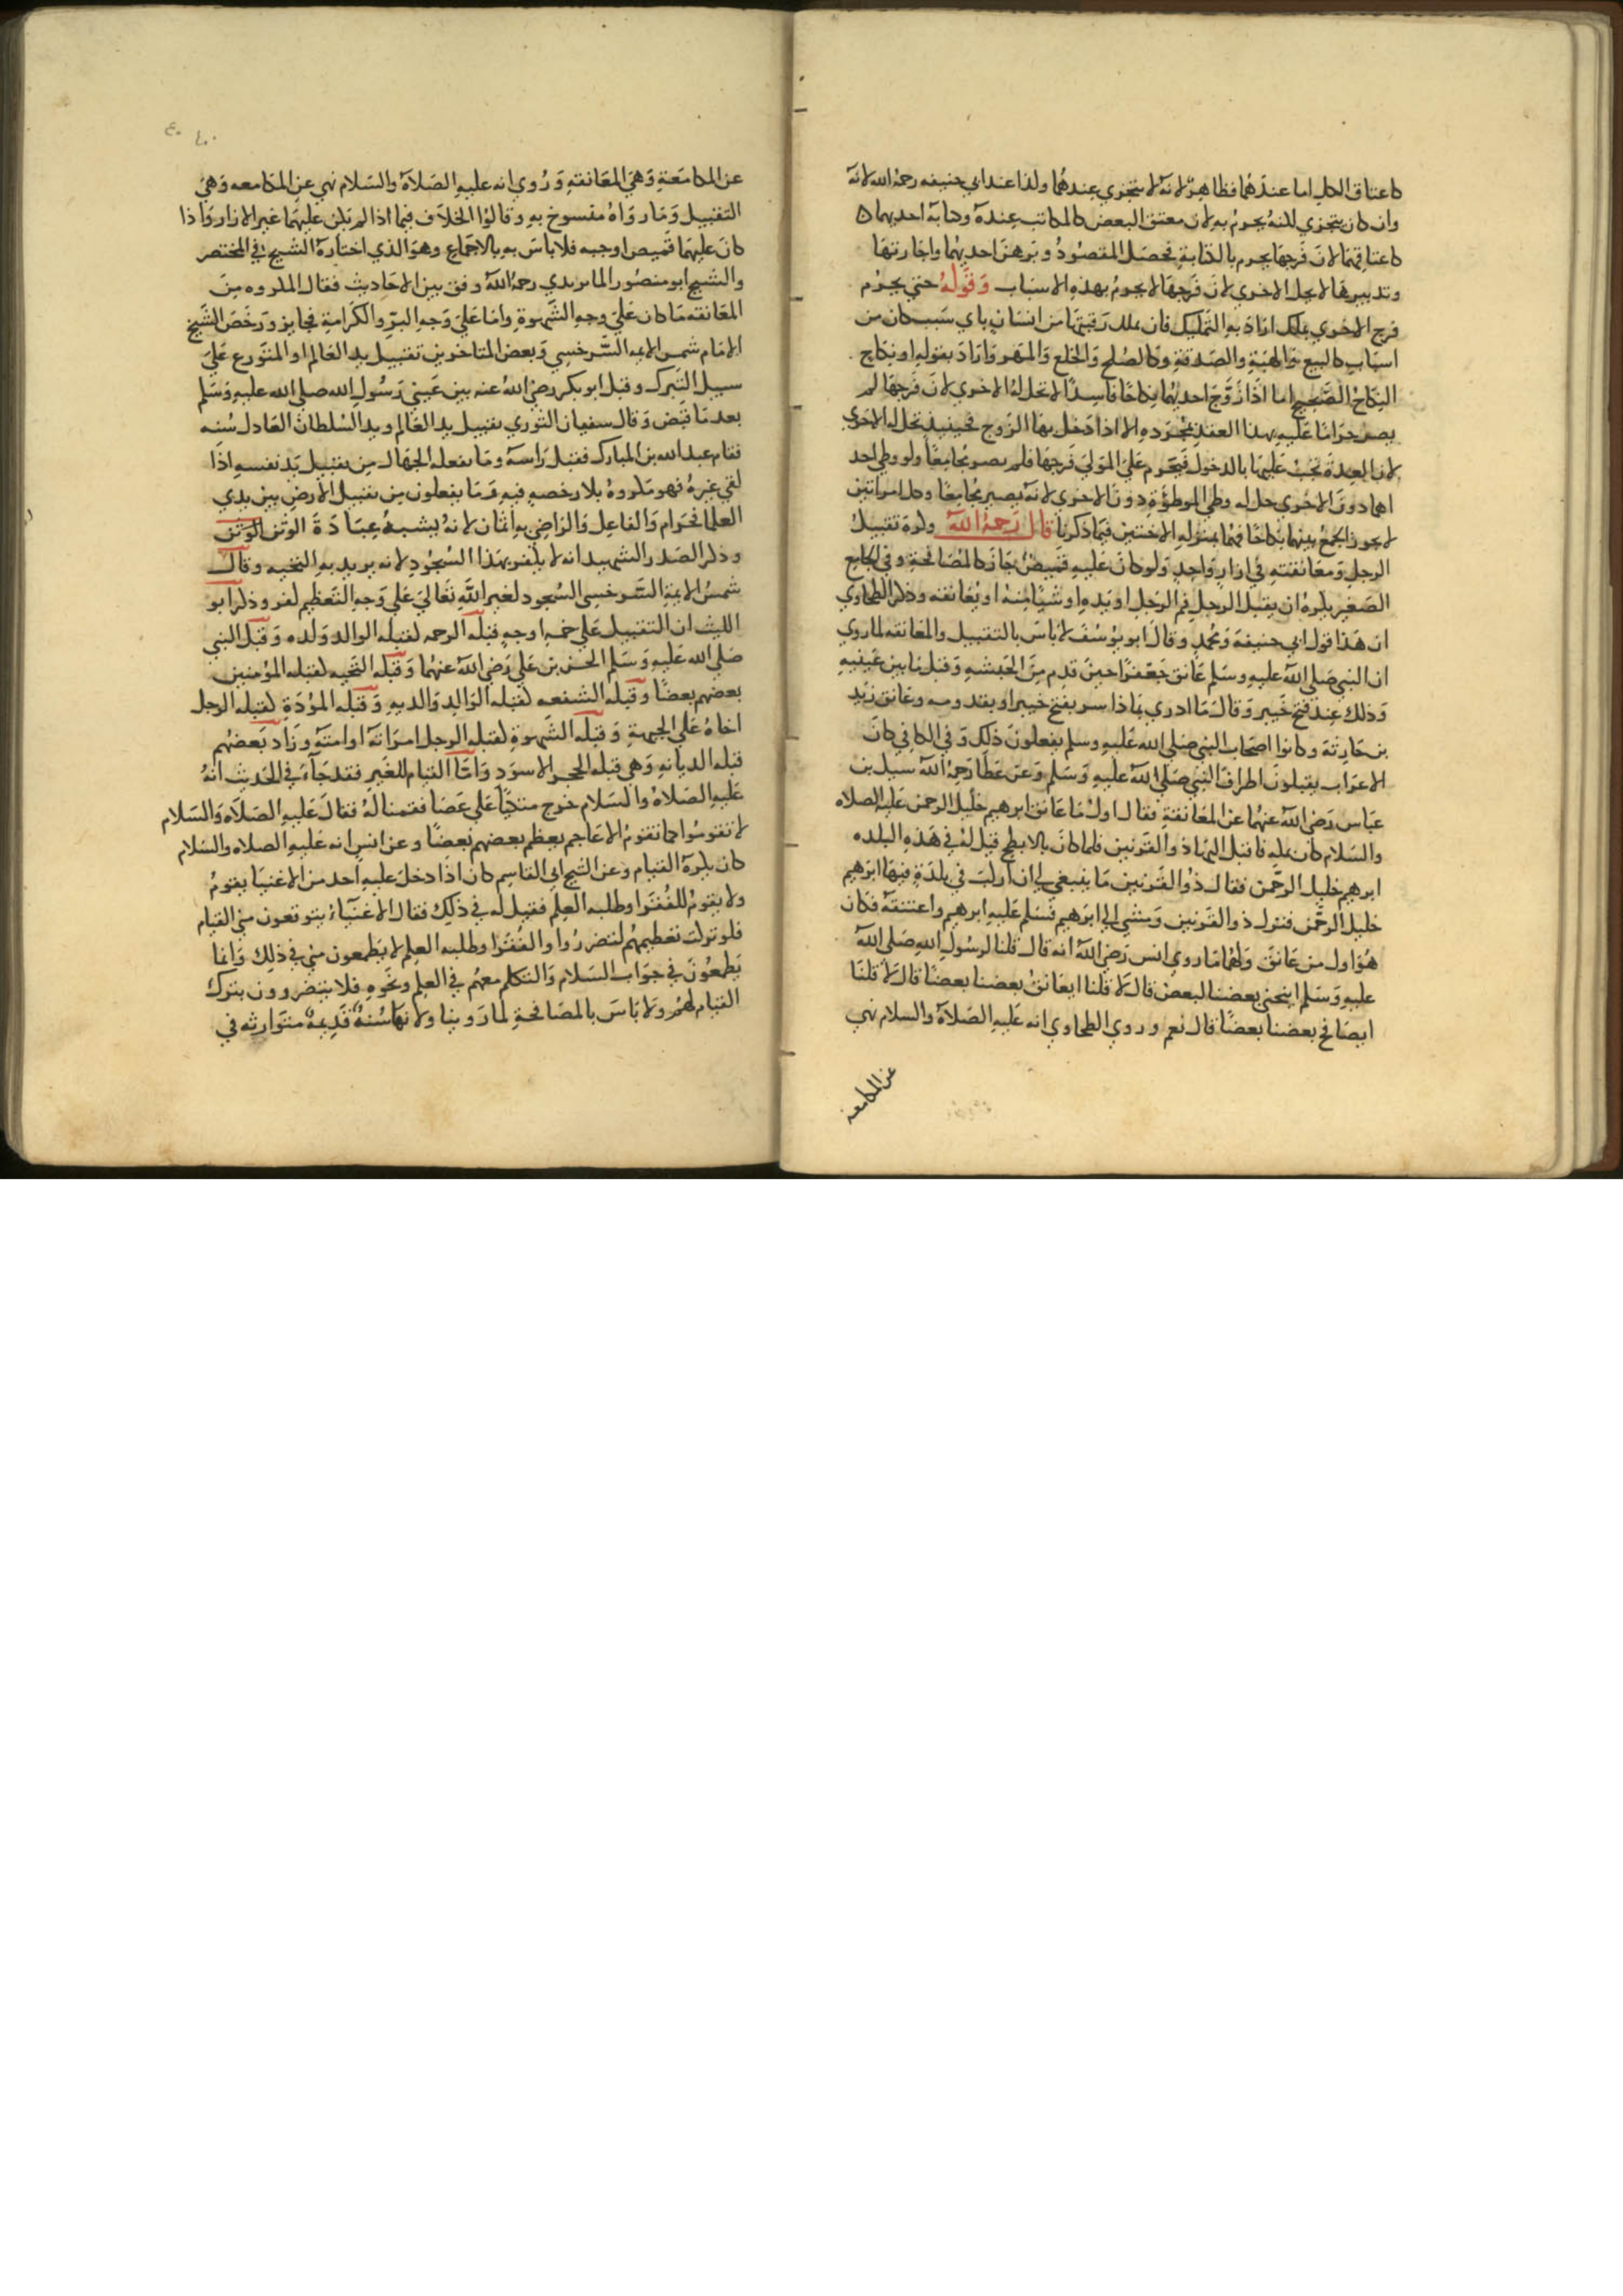 كاعتاق الكل اما عندهما فظاهر لانه لا يتجزي عندهما ولذا عند ابي حنيفه رحمه الله لانه
وان كان يتجزي لكنه يحرم به لان معتق البعض كالمكاتب عنده وكتابة احديهما ه
كاعتاقها لان فرجها يحرم بالكتابة فحصل المقصود وبرهن احديهما واجارتها
وتدبيرها لا يحل الاخري لان فرجها لا يحرم بهذه الاسباب وقوله حتي يحرم
فرج الاخري بملك اراد به التمليك فان يملك رقبتها من انسان باي سبب كان من
اسباب كالبيع والهبة والصدقة وكالصلح والخلع والمهر واراد بقوله او نكاح
النكاح الصحيح اما اذا زوج احديهما نكاحا فاسدا لا تحل له الاخري لان فرجها لم
يصر حراما عليه بهذا العقد بمجرده الا اذا دخل بها الزوج فحينيذ تحل له الاخري
لان العدة تجب عليها بالدخول فيحرم علي المولي فرجها فلم يصر جامعا ولو وطي احد
اهما دون الاخري حل له وطي الموطؤة دون الاخري لانه يصير جامعا وكل امراتين
لا يجوز الجمع بينهما نكاحا فهما بمنزلة الاختين فيما ذكرنا قال رحمه الله وكره تقبيل
الرجل ومعانقته في ازار واحد ولو كان عليه قميص جاز كالمصافحة وفي الجامع
الصغير يكره ان يقبل الرجل فم الرجل او يده او شيا منه او يعانقه وذكر الطحاوي
ان هذا قول ابي حنيفة ومحمد وقال ابو يوسف لا باس بالتقبيل والمعانقه لما روي
ان النبي صلي الله عليه وسلم عانق جعفرا حين قدم من الحبشه وقبل ما بين عينيه
وذلك عند فتح خيبر وقال ما ادري بماذا اسر بفتح خيبر او بقدومه وعانق زيد
بن حارثة وكانوا اصحاب النبي صلي الله عليه وسلم يفعلون ذلك وفي الكافي كان
الاعراب يقبلون اطراف النبي صلي الله عليه وسلم وعن عطا رحمه الله سيل بن
عباس رضي الله عنهما عن المعانقة فقال اول ما عانق ابرهيم خليل الرحمن عليه الصلاه
والسلام كان بمكه فاقبل اليها ذو القرنين فلما كان بالابطح قيل له في هذه البلده
ابرهيم خليل الرحمن فقال ذو القرنين ما ينبغي لي ان اركب في بلدة فيها ابرهيم
خليل الرحمن فنزل ذو القرنين ومشي الي ابرهيم فسلم عليه ابرهيم واعتنقه فكان
هو اول من عانق ولهما ما روي انس رضي الله انه قال قلنا لرسول الله صلي الله
عليه وسلم اينحني بعضنا لبعض قال لا قلنا ايعانق بعضنا بعضا قال لا قلنا
ايصافح بعضنا بعضا قال نعم وروي الطحاوي انه عليه الصلاة والسلام نهي
عن المكامعة
عن المكامعة وهي المعانقه وروي انه عليه الصلاة والسلام نهي عن المكامعه وهي
التقبيل وما رواه منسوخ به وقالوا الخلاف فيما اذا لم يكن عليهما غير الازار واذا
كان عليهما قميص او جبه فلا باس به بالاجماع وهو الذي اختاره الشيخ في المختصر
والشيخ ابو منصور الماتريدي رحمه الله وفق بين الاحاديث فقال المكروه من
المعانقه ما كان علي وجه الشهوة واما علي وجه البر والكرامة فجايز ورخص الشيخ
الامام شمس الايمه السرخسي وبعض المتاخرين تقبيل يد العالم او المتورع علي
سبيل التبرك وقبل ابو بكر رضي الله عنه بين عيني رسول الله صلي الله عليه وسلم
بعد ما قبض وقال سفيان الثوري تقبيل يد العالم ويد السلطان العادل سنه
فقام عبد الله بن المبارك فقبل راسه وما يفعله الجهال من تقبيل يد نفسه اذا
لقي غيره فهو مكروه بلا رخصه فيه وما يفعلون من تقبيل الارض بين يدي
العلما فحرام والفاعل والراضي به اثمان لانه يشبه عبادة الوثن الوثن
وذكر الصدر الشهيد انه لا يكفر بهذا السجود لانه يريد به التحيه وقال
شمس الايمة السرخسي السجود لغير الله تعالي علي وجه التعظيم كفر وذكر ابو
الليث ان التقبيل علي خمسه اوجه قبله الرحمه كقبله الوالد ولده وقبل النبي
صلي الله عليه وسلم الحسن بن علي رضي الله عنهما وقبله التحيه كقبله المؤمنين
بعضهم بعضا وقبله الشفعه كقبله الوالد والديه وقبله المؤدة كقبله الرجل
اخاه علي الجبهة وقبله الشهوة كقبله الرجل امراته او امته وزاد بعضهم
قبله الديانه وهي قبله الحجر الاسود واما القيام للغير فقد جاء في الحديث انه
عليه الصلاة والسلام خرج متكيا علي عصا فقمنا له فقال عليه الصلاه والسلام
لا تقوموا كما تقوم الاعاجم يعظم بعضهم بعضا وعن انس انه عليه الصلاه والسلام
كان يكره القيام وعن الشيخ ابي القاسم كان اذا دخل عليه احد من الاغنيا يقوم
ولا يقوم للفقرا وطلبه العلم فقيل له في ذلك فقال الاغنياء يتوقعون مني القيام
فلو تركت تعظيمهم لتضرروا والفقرا وطلبه العلم لا يطمعون مني في ذلك وانما
يطمعون في جواب السلام والتكلم معهم في العلم ونحوه فلا يتضررون بترك
القيام لهم ولا باس بالمصافحة لما روينا ولانها سنة قديمة متوارثه في